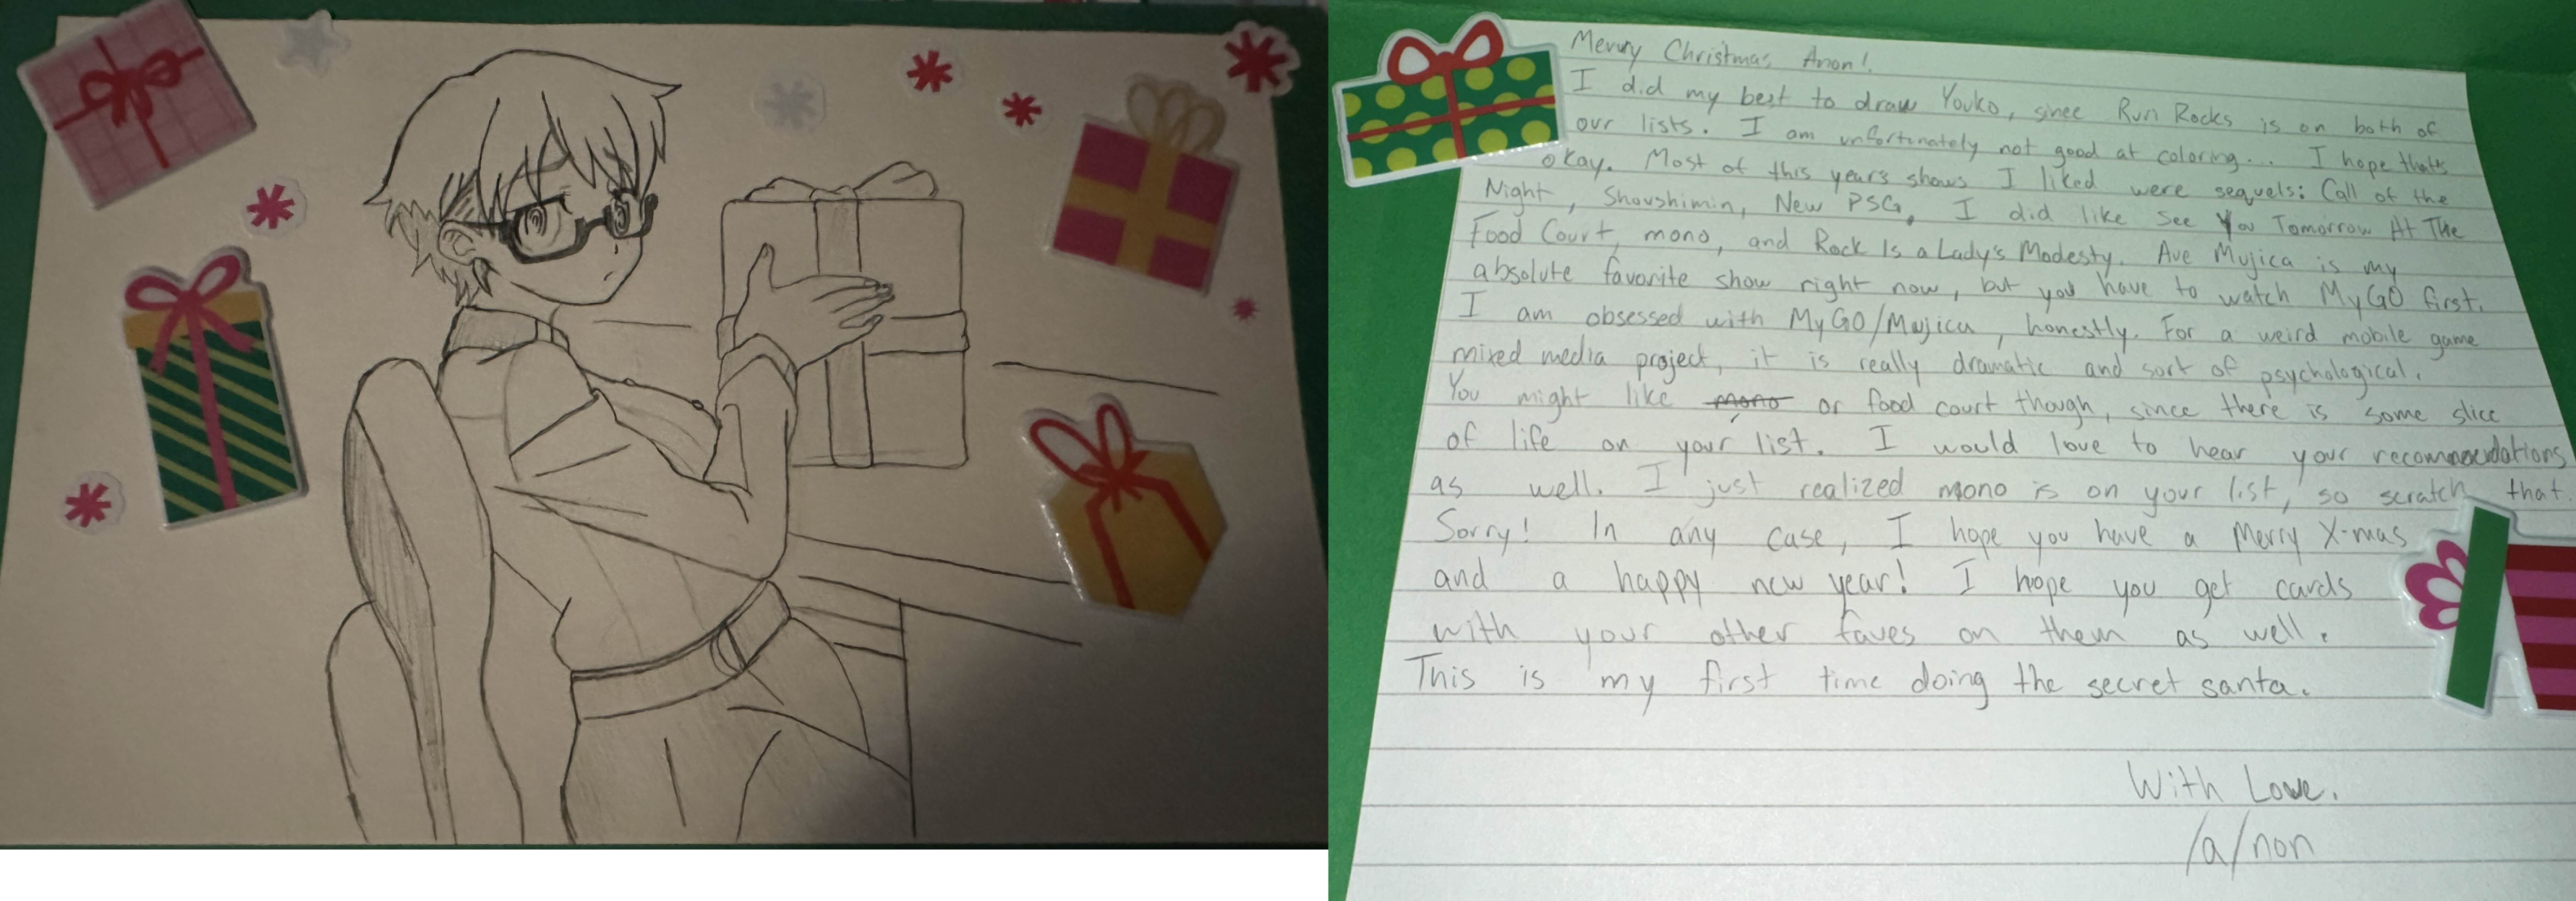 Merry Christmas Anon!
I did my best to draw Youko, since Run Rocks is on both of
our lists. I am unfortunately not good at coloring... I hope thats
okay. Most of this years shows I liked were sequels: Call of the
Night, Shoushimin, New PSG, I did like See You Tomorrow At The
Food Court, mono, and Rock Is a Lady's Modesty. Ave Mujica is my
absolute favorite show right now, but you have to watch MyGO first.
I am obsessed with MyGO/Mujica, honestly. For a weird mobile game
mixed media project, it is really dramatic and sort of psychological.
You might like mono or food court though, since there is some slice
of life on your list. I would love to hear your recommendations
as well. I just realized mono is on your list, so scratch that.
Sorry! In any case, I hope you have a Merry X-mas
and a happy new year! I hope you get cards
with your other faves on them as well.
This is my first time doing the secret santa.
With Love.
/a/non